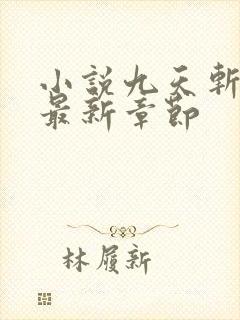 小説九天斬
最新章節
林履新